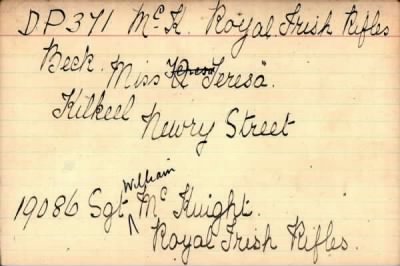 DP371 McK. Royal Irish Rifles
Beck. Miss Teresa.
Kilkeel
Newry Street
William
19086 Sgt Mc Knight.
Royal Irish Rifles.